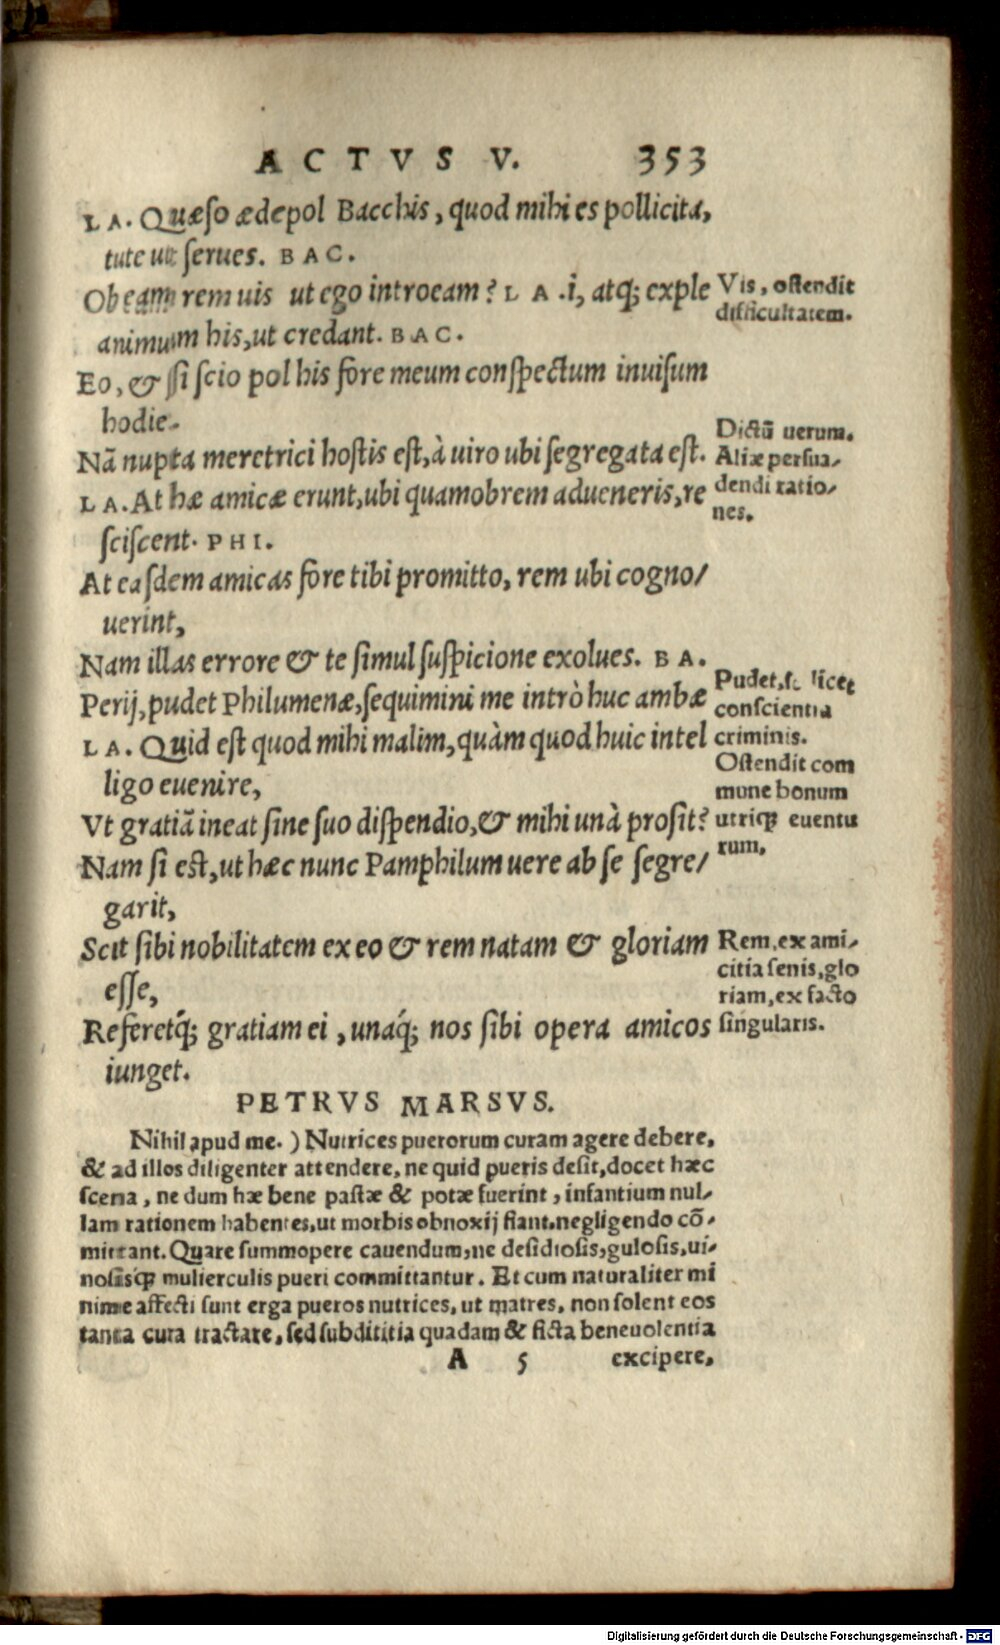 ACTVS V. 353
LA. Quæso ædepol Bacchis, quod mihi es pollicita,
tute uti serues. BAC.
Ob eam rem uis ut ego introeam? LA. i, atq; exple
animum his, ut credant. BAC.
Eo, & si scio pol his fore meum conspectum inuisum
hodie.
Nã nupta meretrici hostis est, à uiro ubi segregata est.
LA. At hæ amicæ erunt, ubi quamobrem adueneris, re
sciscent. PHI.
At easdem amicas fore tibi promitto, rem ubi cogno/
uerint,
Nam illas errore & te simul suspicione exolues. BA.
Perij, pudet Philumenæ, sequimini me intrò huc ambæ
LA. Quid est quod mihi malim, quàm quod huic intel
ligo euenire,
Vt gratiã ineat sine suo dispendio, & mihi unà prosit?
Nam si est, ut hæc nunc Pamphilum uere ab se segre/
garit,
Scit sibi nobilitatem ex eo & rem natam & gloriam
esse,
Referetq́; gratiam ei, unaq́; nos sibi opera amicos
iunget.
Vis, ostendit
difficultatem.
Dictũ uerum.
Aliæ persua/
dendi ratio/
nes.
Pudet, scilicet
conscientia
criminis.
Ostendit com
mune bonum
utriq; euentu
rum.
Rem, ex ami/
citia senis, glo
riam, ex facto
singularis.
PETRVS MARSVS.
Nihil apud me. ) Nutrices puerorum curam agere debere,
& ad illos diligenter attendere, ne quid pueris desit, docet hæc
scena, ne dum hæ bene pastæ & potæ fuerint, infantium nul/
lam rationem habentes, ut morbis obnoxij fiant, negligendo cõ/
mittant. Quare summopere cauendum, ne desidiosis, gulosis, ui/
nosisq; mulierculis pueri committantur. Et cum naturaliter mi
nime affecti sunt erga pueros nutrices, ut matres, non solent eos
tanta cura tractare, sed subdititia quadam & ficta beneuolentia
A 5 excipere,
Digitalisierung gefördert durch die Deutsche Forschungsgemeinschaft - DFG